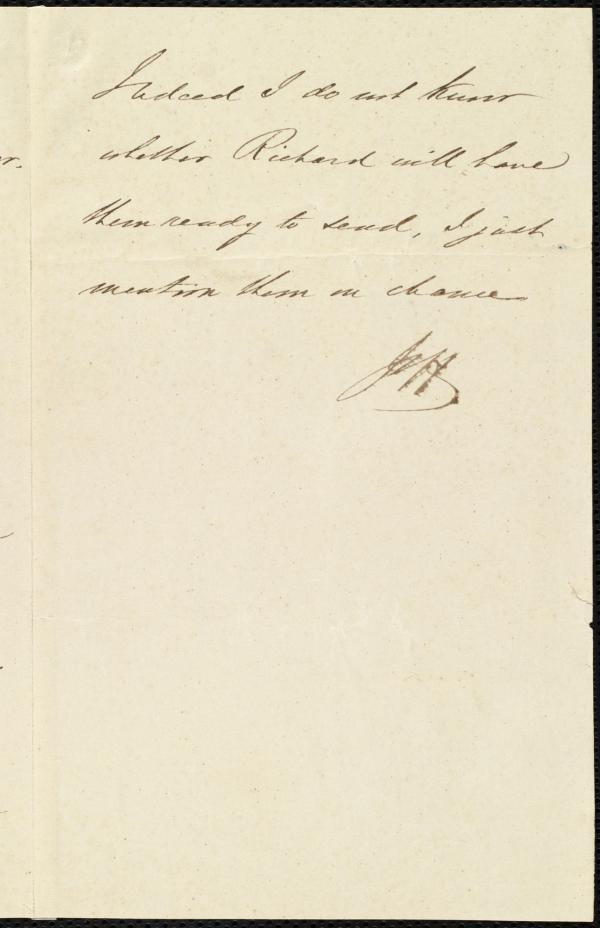 Indeed I do not know
whether Richard will have
them ready to send, I just
mention them on chance